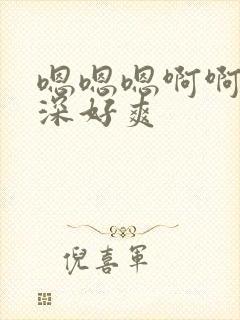 嗯嗯嗯啊啊
深好爽
倪喜军